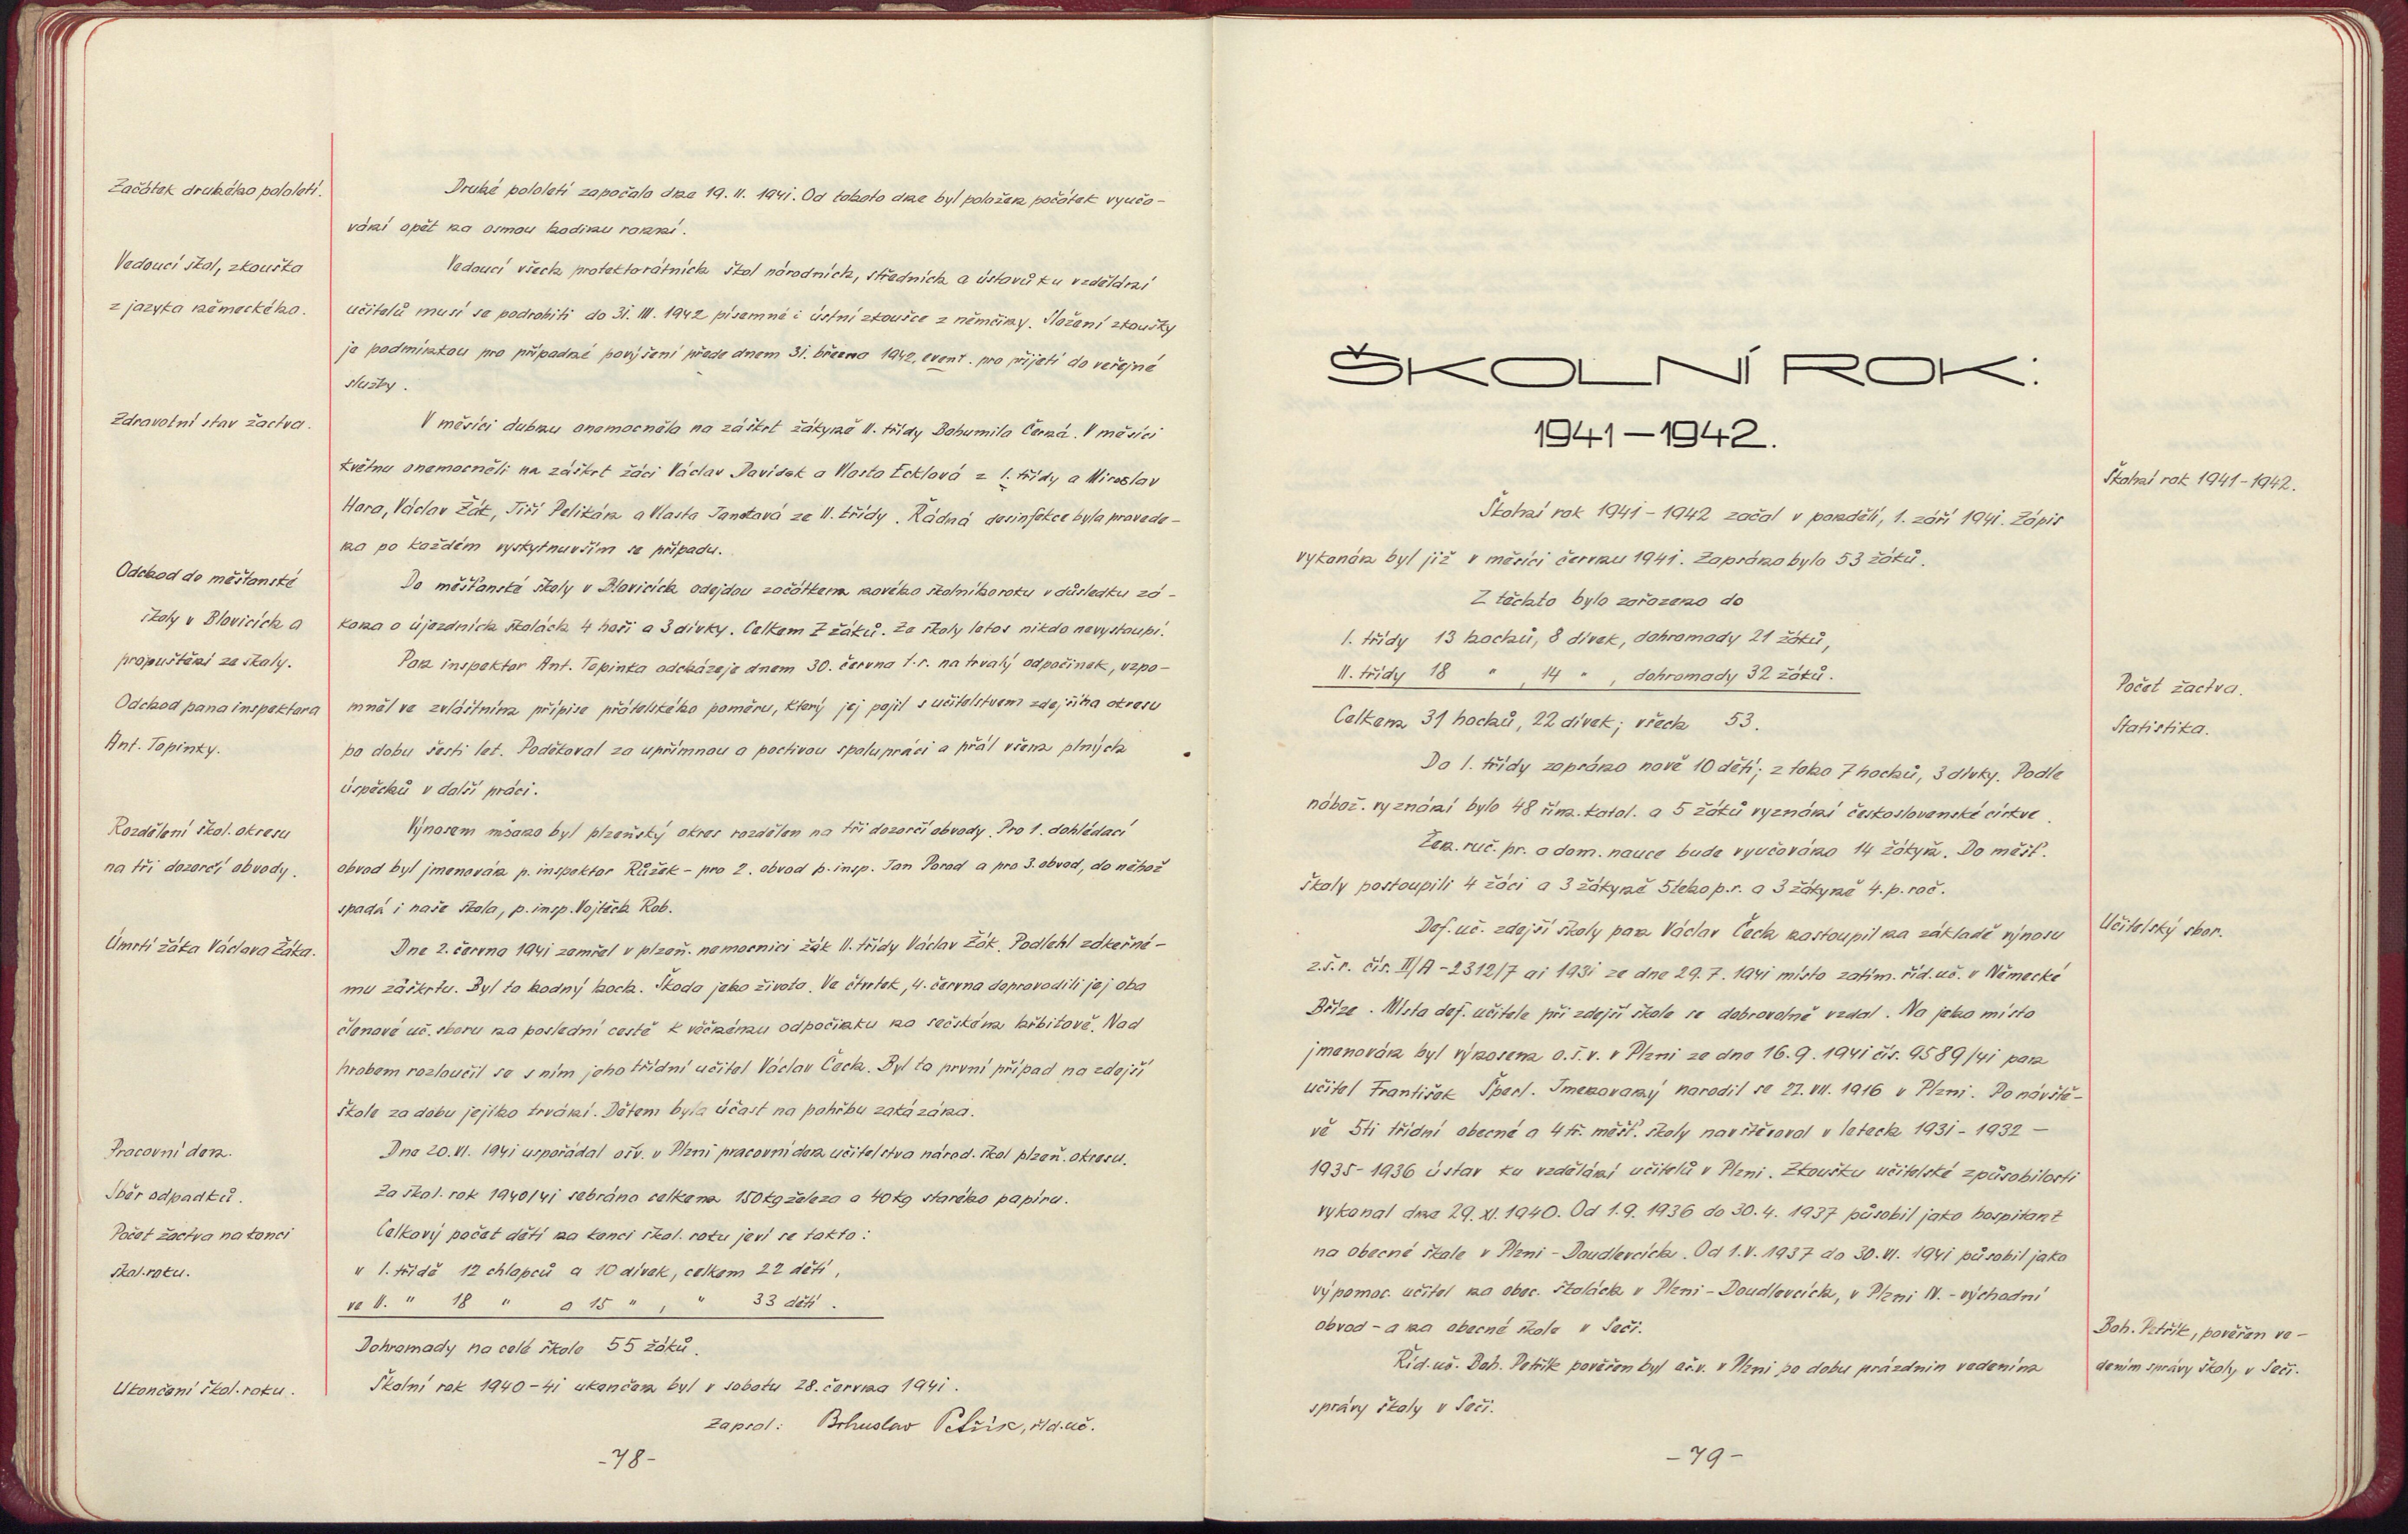 Začátek druhého pololetí.
Druhé pololetí započalo dne 19. II. 1941. Od tohoto dne byl položen počátek vyučo-
vání opět na osmou hodinu ranní.
Vedoucí škol, zkouška
z jazyka německého.
Vedoucí všech protektorátních škol národních, středních a ústavů ku vzdělání
učitelů musí se podrobiti do 31. III. 1942 písemné i ústní zkoušce z němčiny. Složení zkoušky
je podmínkou pro případné povýšení přede dnem 31. března 1942, event. pro přijetí do veřejné
služby.
Zdravotní stav žactva.
V měsíci dubnu onemocněla na záškrt žákyně II. třídy Bohumila Černá. V měsíci
květnu onemocněli na záškrt žáci Václav Davídek a Vlasta Ecklová z I. třídy a Miroslav
Hora, Václav Žák, Jiří Pelikán a Vlasta Janotová ze II. třídy. Řádná desinfekce byla provede-
na po každém vyskytnuvším se případu.
Odchod do měšťanské
školy v Blovicích a
propuštění ze školy.
Do měšťanské školy v Blovicích odejdou začátkem nového školního roku v důsledku zá-
kona o újezdních školách 4 hoši a 3 dívky. Celkem 7 žáků. Ze školy letos nikdo nevystoupí.
Odchod pana inspektora
Ant. Topinky.
Pan inspektor Ant. Topinka odcházeje dnem 30. června t.r. na trvalý odpočinek, vzpo-
mněl ve zvláštním přípise přátelského poměru, který jej pojil s učitelstvem zdejšího okresu
po dobu šesti let. Poděkoval za upřímnou a poctivou spolupráci a přál všem plných
úspěchů v další práci.
Rozdělení škol. okresu
na tři dozorčí obvody.
Výnosem mšano byl plzeňský okres rozdělen na tři dozorčí obvody. Pro 1. dohlédací
obvod byl jmenován p. inspektor Růžek - pro 2. obvod p. insp. Jan Porod a pro 3. obvod, do něhož
spadá i naše škola, p. insp. Vojtěch Rob.
Úmrtí žáka Václava Žáka.
Dne 2. června 1941 zemřel v plzeň. nemocnici žák II. třídy Václav Žák. Podlehl zákeřné-
mu záškrtu. Byl to hodný hoch. Škoda jeho života. Ve čtvrtek, 4. června doprovodili jej oba
členové uč. sboru na poslední cestě k věčnému odpočinku na sečském hřbitově. Nad
hrobem rozloučil se s ním jeho třídní učitel Václav Čech. Byl to první případ na zdejší
škole za dobu jejího trvání. Dětem byla účast na pohřbu zakázána.
Pracovní den.
Dne 20. VI. 1941 uspořádal ošv. v Plzni pracovní den učitelstva národ. škol plzeň. okresu.
Sběr odpadků.
Za škol. rok 1940/41 sebráno celkem 150 kg železa a 40 kg starého papíru.
Počet žactva na konci
škol. roku.
Celkový počet dětí na konci škol. roku jeví se takto:
v I. třídě 12 chlapců a 10 dívek, celkem 22 dětí,
ve II. " 18 " a 15 " , " 33 dětí.
Dohromady na celé škole 55 žáků.
Ukončení škol. roku.
Školní rok 1940-41 ukončen byl v sobotu 28. června 1941.
Zapsal: Bohuslav Petřík, říd. uč.
-78-
ŠKOLNÍ ROK:
1941-1942.
Školní rok 1941-1942.
Školní rok 1941-1942 začal v pondělí, 1. září 1941. Zápis
vykonán byl již v měsíci červnu 1941. Zapsáno bylo 53 žáků.
Z těchto bylo zařazeno do
I. třídy 13 hochů, 8 dívek, dohromady 21 žáků,
II. třídy 18 " , 14 " , dohromady 32 žáků.
Počet žactva.
Statistika.
Celkem 31 hochů, 22 dívek; všech 53.
Do I. třídy zapsáno nově 10 dětí; z toho 7 hochů, 3 dívky. Podle
nábož. vyznání bylo 48 řím. katol. a 5 žáků vyznání československé církve.
Žen. ruč. pr. a dom. nauce bude vyučováno 14 žákyň. Do měšť.
školy postoupili 4 žáci a 3 žákyně 5tého p.r. a 3 žákyně 4. p. roč.
Učitelský sbor.
Def. uč. zdejší školy pan Václav Čech nastoupil na základě výnosu
z.š.r. čís. II/A-2312/7 ai 1931 ze dne 29.7. 1941 místo zatím. říd. uč. v Německé
Bříze. Místa def. učitele při zdejší škole se dobrovolně vzdal. Na jeho místo
jmenován byl výnosem o.š.v. v Plzni ze dne 16.9. 1941 čís. 9589/41 pan
učitel František Šperl. Jmenovaný narodil se 22. VII. 1916 v Plzni. Po návště-
vě 5ti třídní obecné a 4 tř. měšť. školy navštěvoval v letech 1931-1932 -
1935-1936 ústav ku vzdělání učitelů v Plzni. Zkoušku učitelské způsobilosti
vykonal dne 29. XI. 1940. Od 1.9. 1936 do 30.4. 1937 působil jako hospitant
na obecné škole v Plzni-Doudlevcích. Od 1. V. 1937 do 30. VI. 1941 působil jako
výpomoc. učitel na obec. školách v Plzni-Doudlevcích, v Plzni IV. - východní
obvod - a na obecné škole v Seči.
Boh. Petřík, pověřen ve-
dením správy školy v Seči.
Říd. uč. Boh. Petřík pověřen byl ošv. v Plzni po dobu prázdnin vedením
správy školy v Seči.
-79-